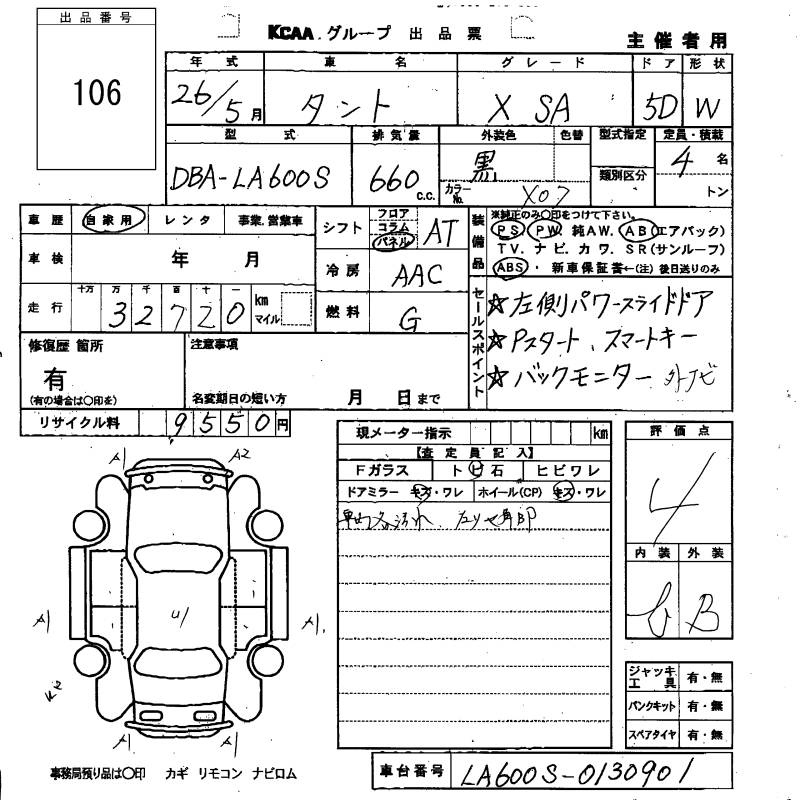 出品番号
106
KCAA.グループ 出品票
主催者用
年式 車名 グレード ドア 形状
26/5月 タント X SA 5D W
型式 排気量 外装色 色替 型式指定 定員・積載
DBA-LA600S 660 c.c. 黒 カラーNo. X07 類別区分 4名 トン
車歴 自家用 レンタ 事業.営業車
シフト フロア コラム パネル AT
装備品 ※純正のみ〇印をつけて下さい。
PS PW 純AW. AB(エアバック)
TV. ナビ. カワ. SR(サンルーフ)
ABS ・ 新車保証書←(注) 後日送りのみ
車検 年 月
冷房 AAC
走行 十万 万 千 百 十 一
32720 km マイル
燃料 G
セールスポイント
☆左側パワースライドドア
☆Pスタート、スマートキー
☆バックモニター 外ナビ
修復歴 箇所
有
(有の場合は〇印を)
注意事項
名変期日の短い方 月 日まで
リサイクル料 9550円
現メーター指示 km
【査定員記入】
Fガラス トビ石 ヒビワレ
ドアミラー キズ・ワレ ホイール(CP) キズ・ワレ
評価点
4
内装 外装
B
A1 A2
A1 U1 A1.
A1 A1
ジャッキ工具 有・無
パンクキット 有・無
スペアタイヤ 有・無
事務局預り品は〇印 カギ リモコン ナビロム
車台番号 LA600S-0130901